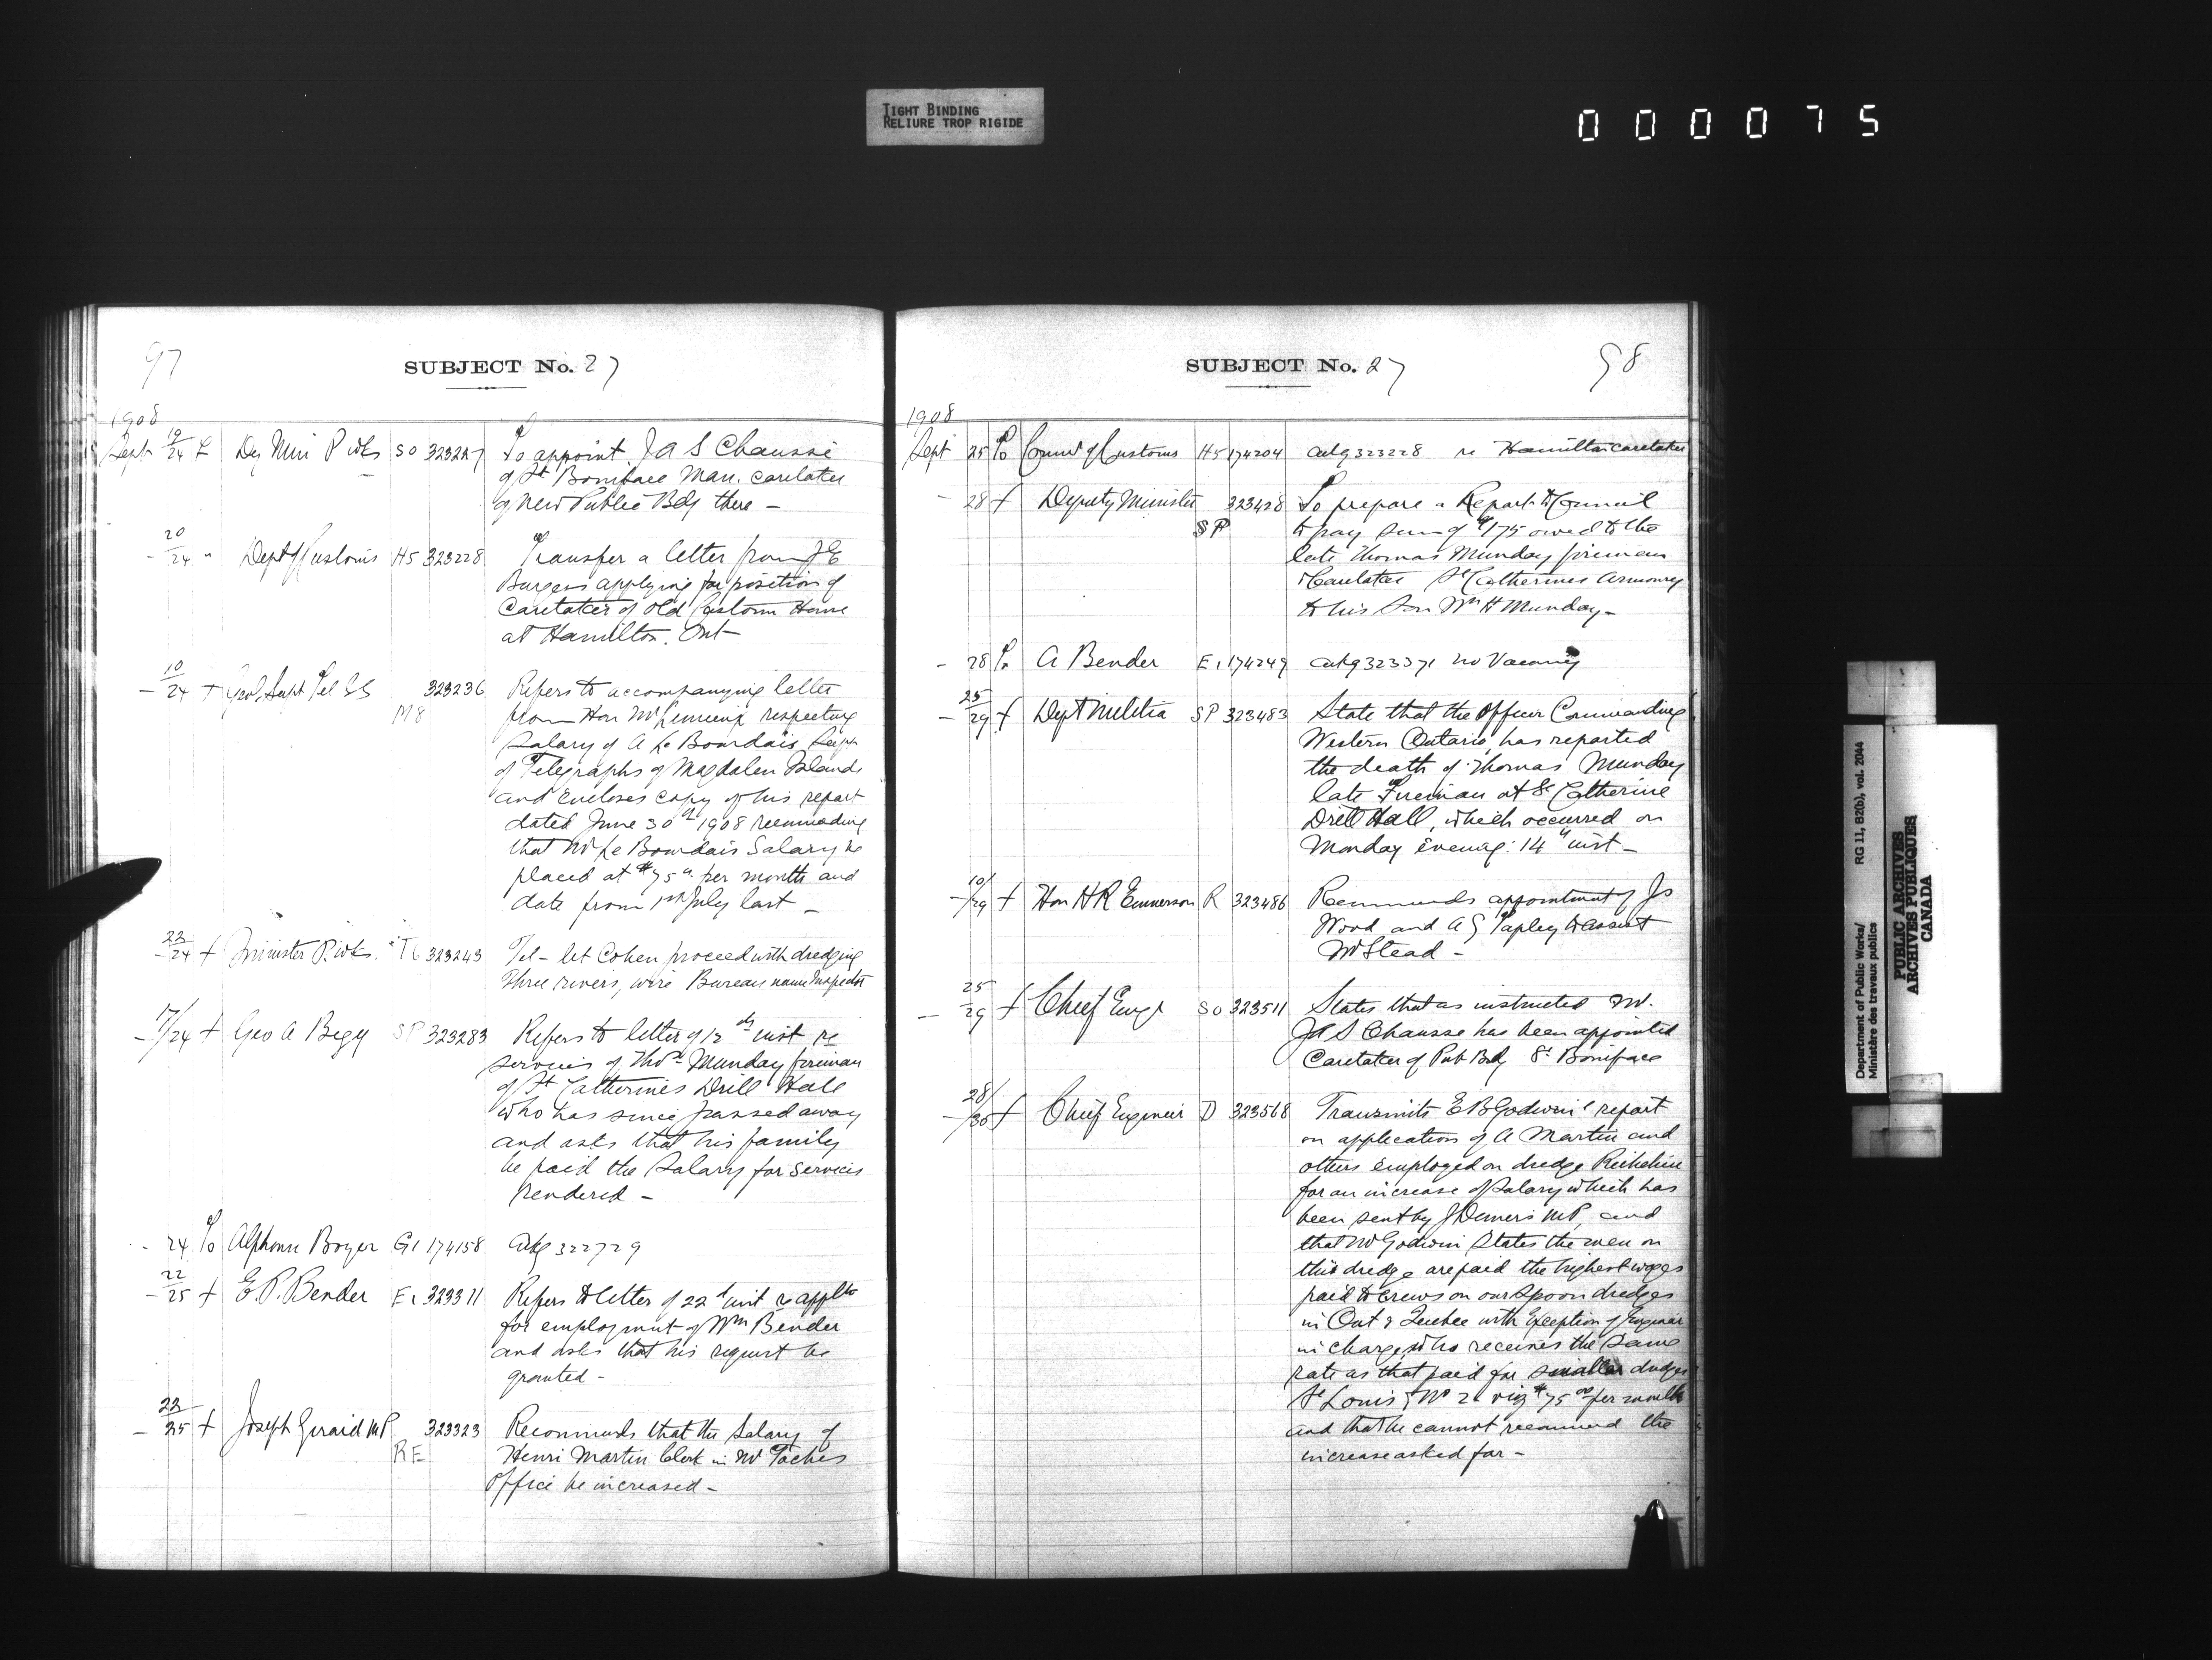 TIGHT BINDING
RELIURE TROP RIGIDE
000075
97
SUBJECT No. 27
1908
Sept 19/24 Dy Min P wks SO 323227 To appoint J A S Chausse
of St Boniface Man. caretaker
of New Public Bdg there –
20/24 " Dept of Customs H5 323228 Transfer a letter from J E
Burgess applying for position of
Caretaker of old Custom House
at Hamilton. Ont –
– 10/24 + Genl Supt Tel SS M8 323236 Refers to accompanying letter
from Hon Mr Lemieux respecting
Salary of A Le Bourdais Supt
of Telegraphs of Magdalen Islands
and Encloses copy of his report
dated June 30th 1908 recommending
that Mr Le Bourdais Salary be
placed at $75 per month and
date from 1st July last –
– 22/24 + Minister P. wks. T6 323243 Tel – let Cohen proceed with dredging
Three rivers, wire Bureau name Inspector
– 17/24 + Geo A Begy SP 323283 Refers to letter of 12th inst re
services of Thos Munday fireman
of St Catherines Drill Hall
who has since passed away
and asks that his family
be paid the Salary for services
rendered –
- 24 To Alphonse Boyer G1 174158 ackg 322729
– 22/25 + E. P. Bender E1 323311 Refers to letter of 22d inst re applto
for employment of Wm Bender
and asks that his request be
granted –
– 22/25 + Joseph Girard MP RE 323323 Recommends that the Salary of
Henri Martin Clerk in Mr Taches
Office be increased –
SUBJECT No. 27
98
1908
Sept 25 To Commr of Customs H5 174204 ackg 323228 re Hamilton caretaker
– 28 + Deputy Minister SP 323428 To prepare a Report to Council
to pay sum of $175 owed to the
late Thomas Munday fireman
& Caretaker St Catherines Armoury
to his Son Wm H Munday –
- 28 To A Bender E1 174249 ackg 323371 no Vacancy
– 25/29 + Dept Militia SP 323483 State that the Officer Commanding
Western Ontario, has reported
the death of Thomas Munday
late Fireman at St Catherine
Drill Hall, which occurred on
Monday evening 14th inst –
– 10/29 + Hon H R Emmerson R 323486 Recommends appointment of Js
Wood and A G Tapley to assist
Mr Stead –
– 25/29 + Chief Engr SO 323511 States that as instructed Mr.
JA S Chausse has been appointed
Caretaker of Pub Bdg St Boniface
– 28/30 + Chief Engineer D 323568 Transmits E B Godwin's report
on application of A Martin and
others employed on dredge Richelieu
for an increase of Salary which has
been sent by J Demers MP, and
that Mr Godwin States the men on
this dredge are paid the highest wages
paid to crews on our Spoon dredges
in Ont & Quebec with Exception of Engineer
in charge, who receives the Same
rate as that paid for smaller dredges
St Louis & No 2 viz $75 00 per month
and that he cannot recommend the
increase asked for –
Department of Public Works/
Ministère des travaux publics
RG 11, B2(b), vol. 2044
PUBLIC ARCHIVES
ARCHIVES PUBLIQUES
CANADA